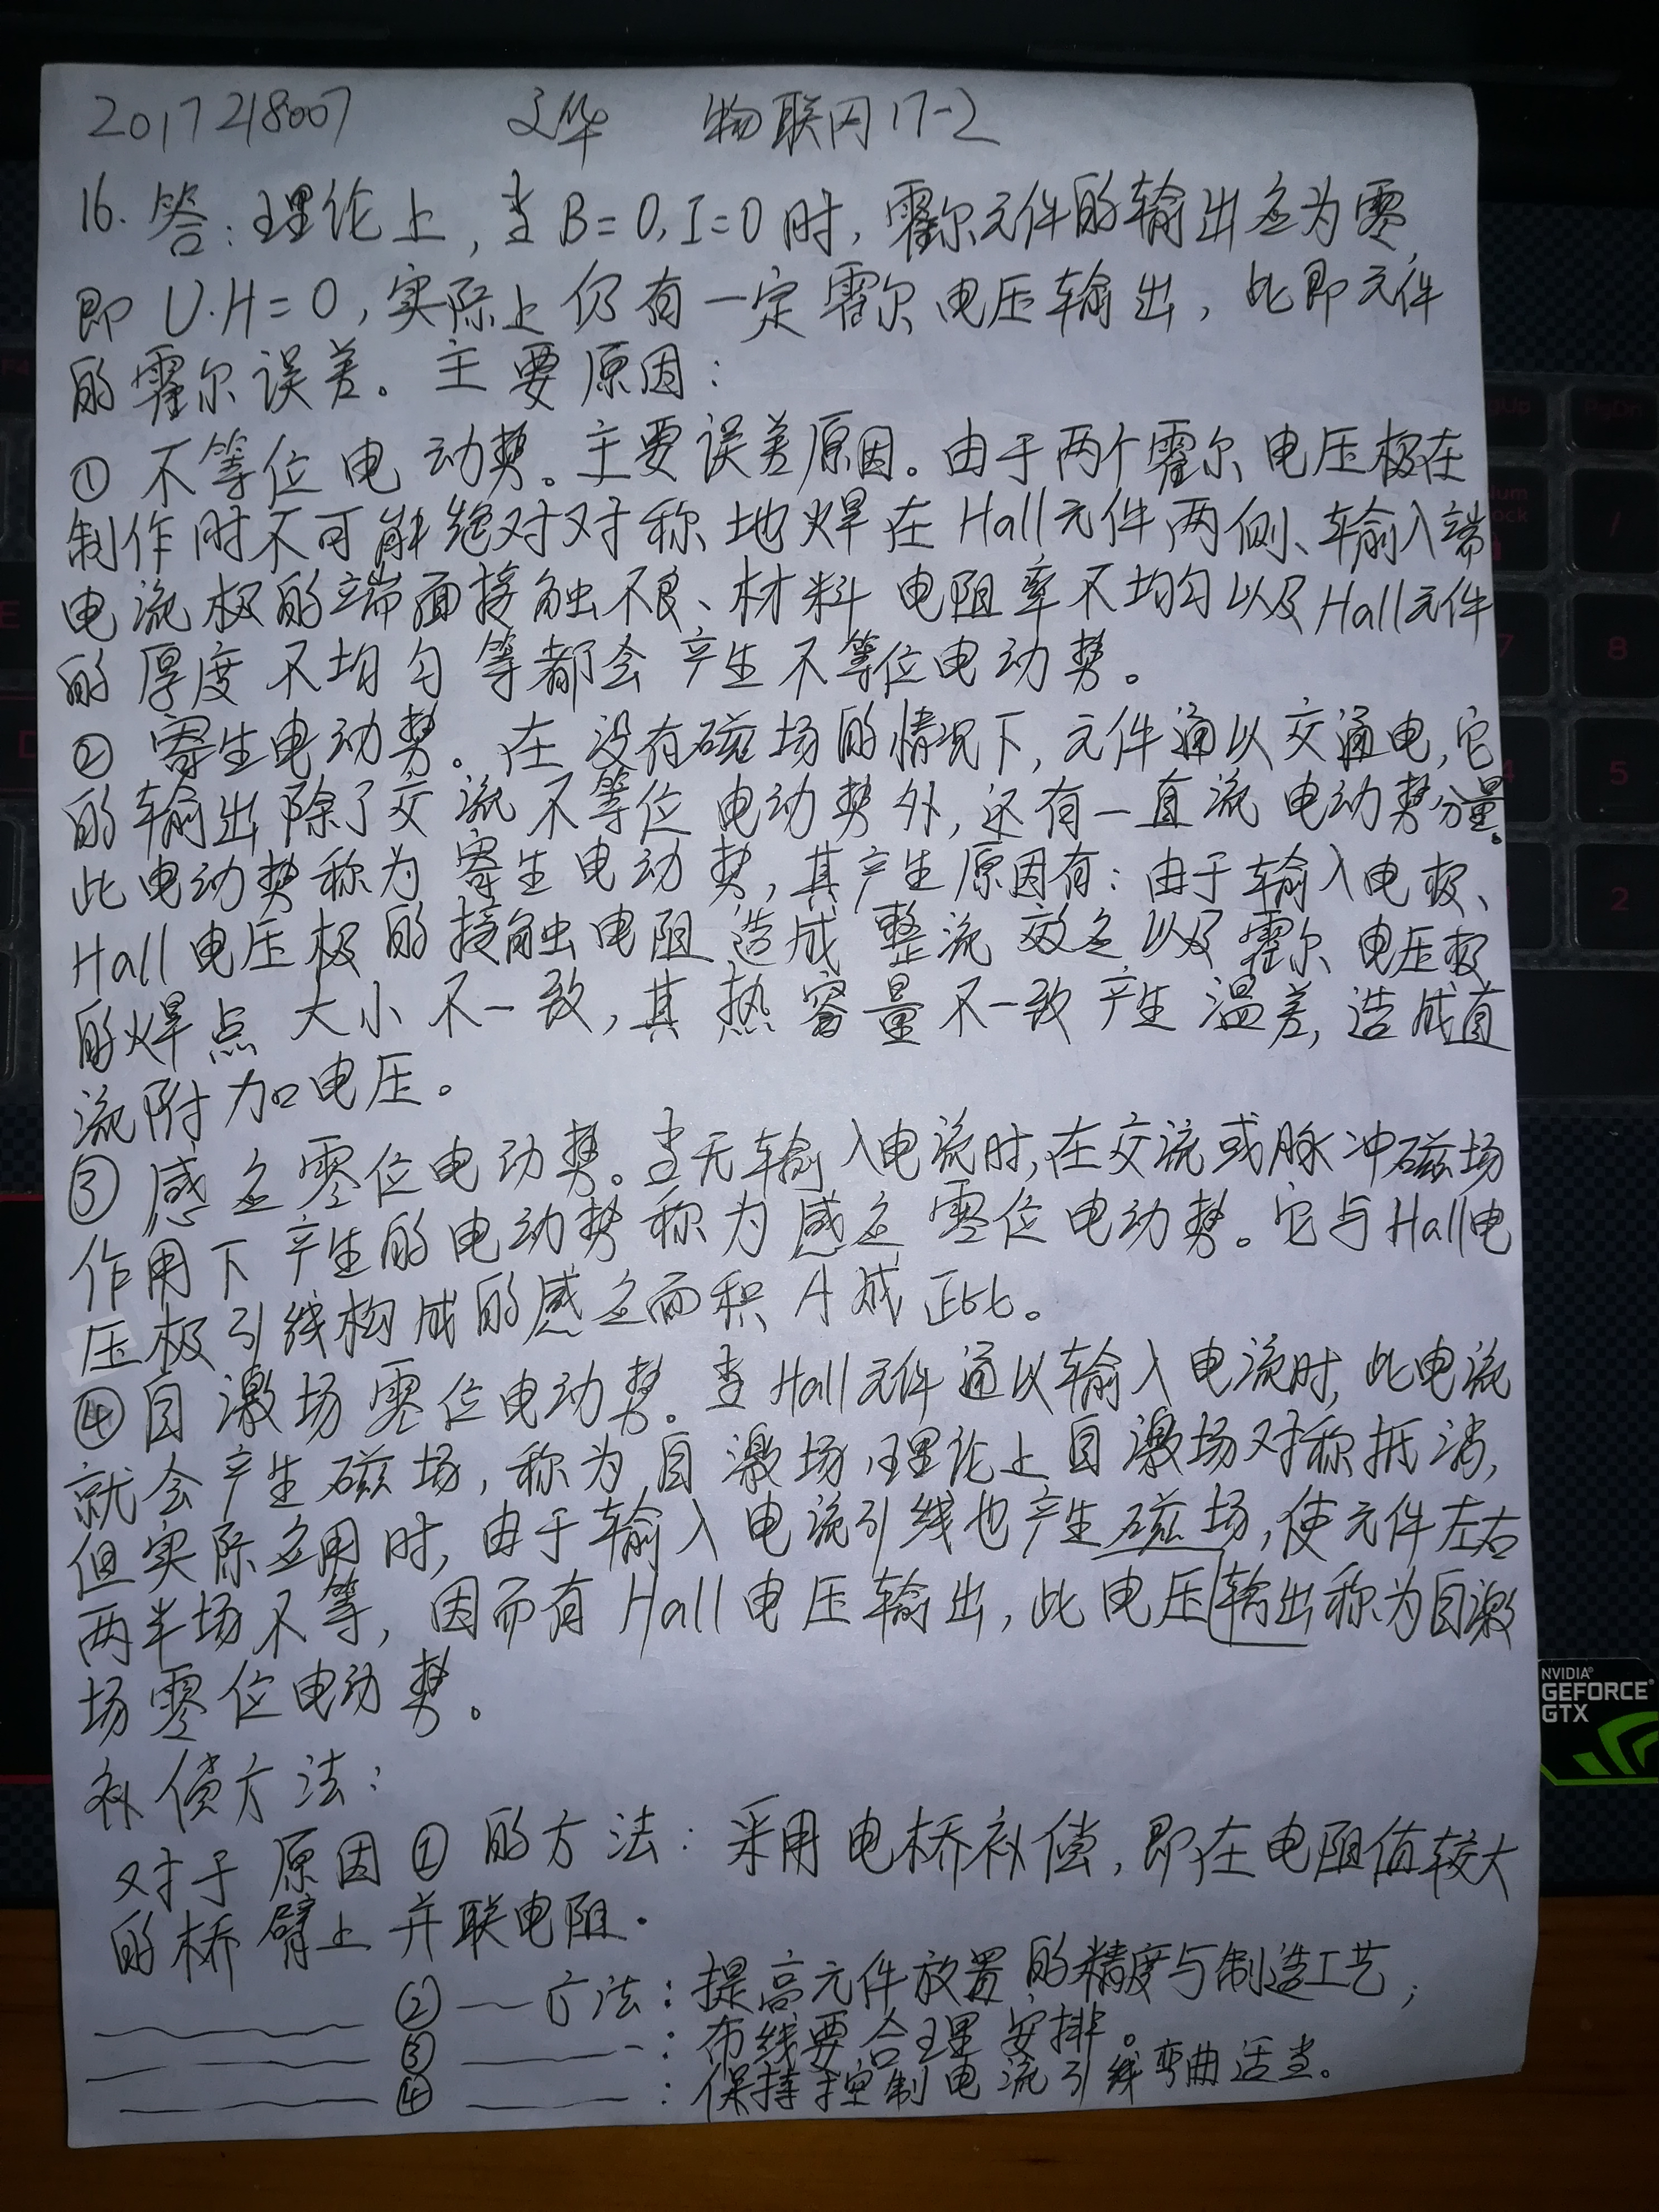 2017218007 文华 物联网17-2
16. 答：理论上，当B=0,I=0时，霍尔元件的输出应为零
即U.H=0，实际上仍有一定霍尔电压输出，此即元件
的霍尔误差。主要原因：
① 不等位电动势。主要误差原因。由于两个霍尔电压极在
制作时不可能绝对对称地焊在Hall元件两侧、输入端
电流极的端面接触不良、材料电阻率不均匀以及Hall元件
的厚度不均匀等都会产生不等位电动势。
② 寄生电动势。在没有磁场的情况下，元件通以交通电，它
的输出除了交流不等位电动势外，还有一直流电动势分量。
此电动势称为寄生电动势，其产生原因有：由于输入电极、
Hall电压极的接触电阻造成整流效应以及霍尔电压极
的焊点大小不一致，其热容量不一致产生温差，造成直
流附加电压。
③ 感应零位电动势。当无输入电流时，在交流或脉冲磁场
作用下产生的电动势称为感应零位电动势。它与Hall电
压极引线构成的感应面积A成正比。
④ 自激场零位电动势。当Hall元件通以输入电流时，此电流
就会产生磁场，称为自激场，理论上自激场对称抵消，
但实际应用时，由于输入电流引线也产生磁场，使元件左右
两半场不等，因而有Hall电压输出，此电压输出称为自激
场零位电动势。
补偿方法：
对于原因①的方法：采用电桥补偿，即在电阻值较大
的桥臂上并联电阻.
② —— 方法：提高元件放置的精度与制造工艺；
③ ——：布线要合理安排。
④ ——：保持控制电流引线弯曲适当。
NVIDIA
GEFORCE
GTX
PgUp
PgDn
7
8
4
5
2
/